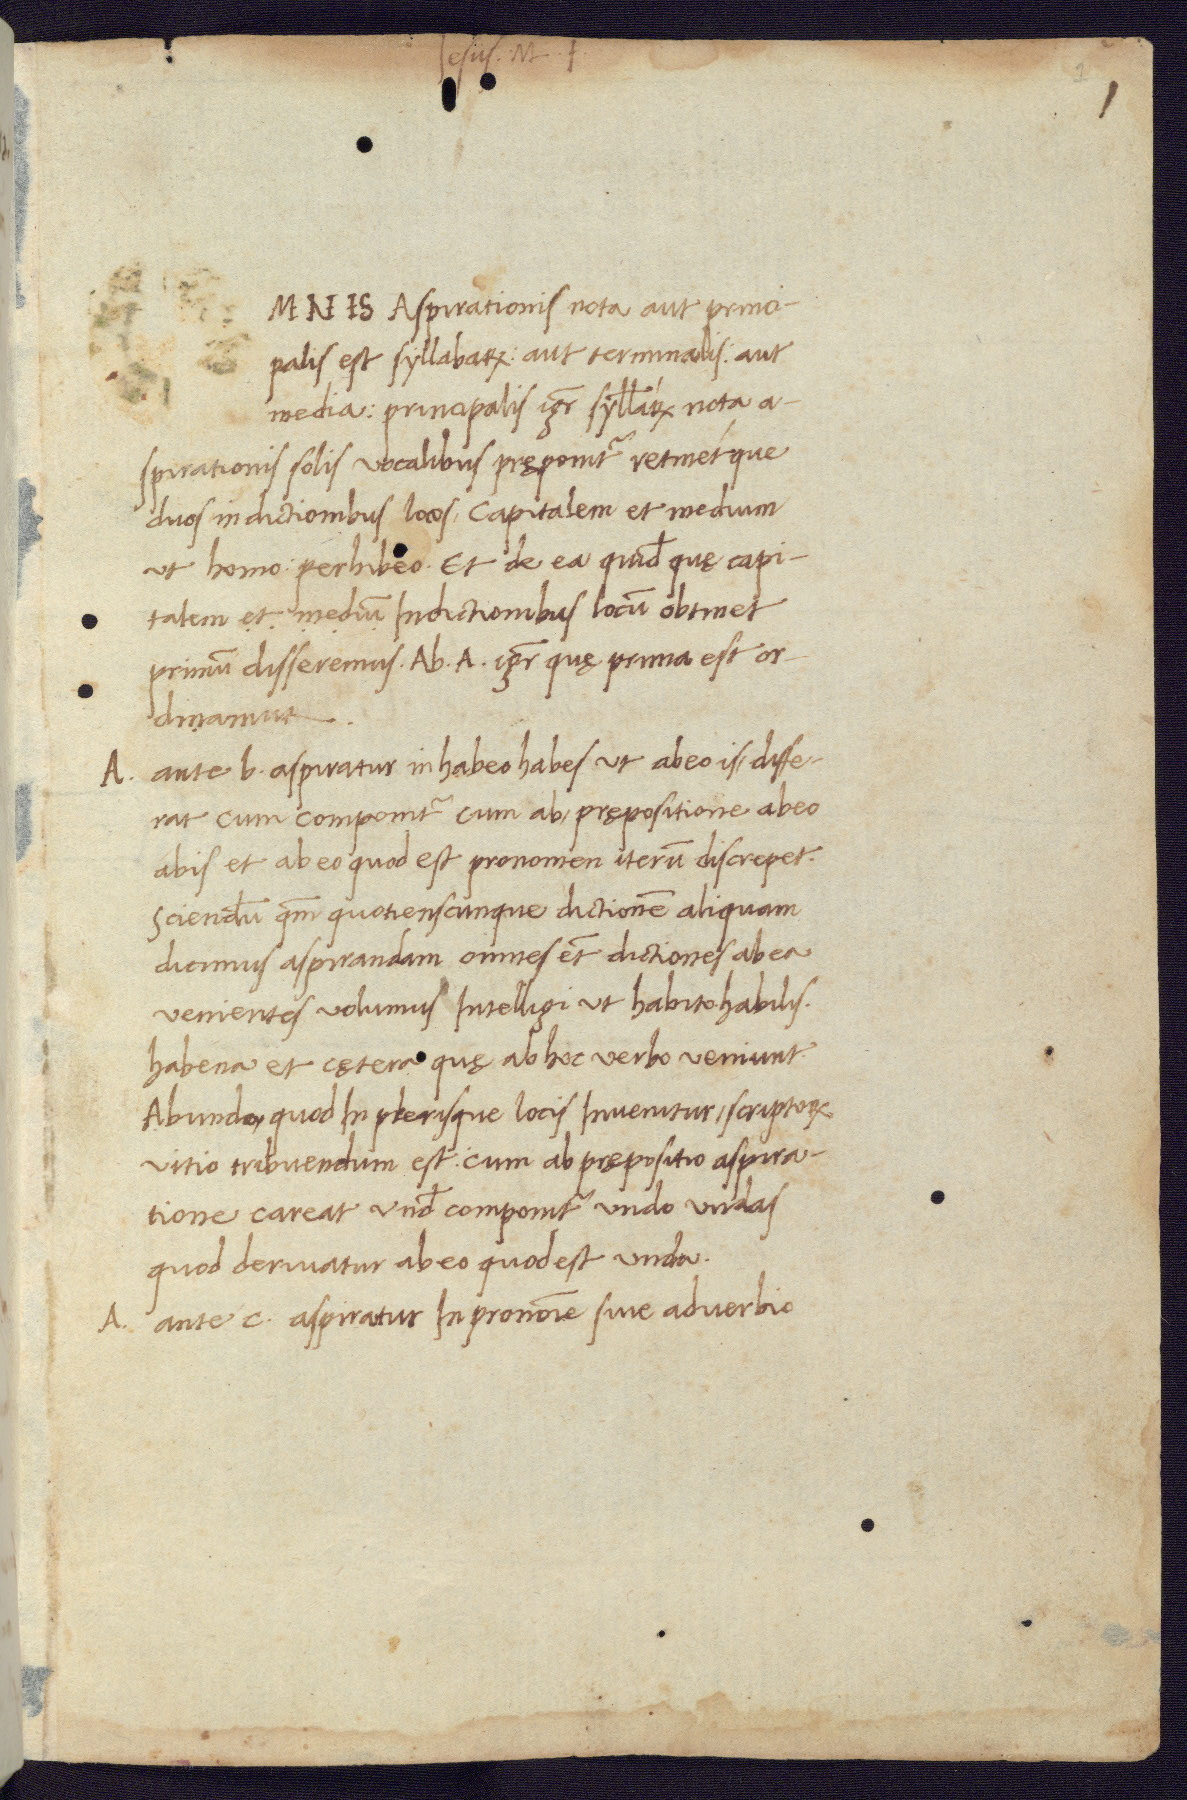 Iesus. M. f.
1
1
MNIS Aspirationis nota aut princi-
palis est syllabaꝝ: aut terminalis: aut
media: principalis igr̄ syllaꝝ nota a-
spirationis solis vocalibus pręponit᷑ retinet´que
duos in dictionibus locos, Capitalem et medium
vt homo: perhibeo. Et de ea quid̄ quę capi-
talem et mediū Indictionibus locū obtinet
primū disseremus. Ab. A. igr̄ quę prima est or-
dinamur.
A. ante b. aspiratur in habeo habes vt abeo is, diffe-
rat cum componit᷑ cum ab, prępositione abeo
abis et ab eo quod est pronomen iterū discrepet.
Sciendū qm̄ quotienscunque dictionē aliquam
dicimus aspirandam omnes et̄ dictiones abea
venientes volumus Intelligi vt habito habilis.
habena et cętera quę ab hoc verbo veniunt.
Abundo, quod In plerisque locis Inuenitur, scriptoꝝ
vitio tribuendum est. cum ab prępositio aspira-
tione careat vnd̄ componit᷑ vndo vndas
quod deriuatur ab eo quod est vnda.
A. ante c. aspiratur In pronoīe siue aduerbio